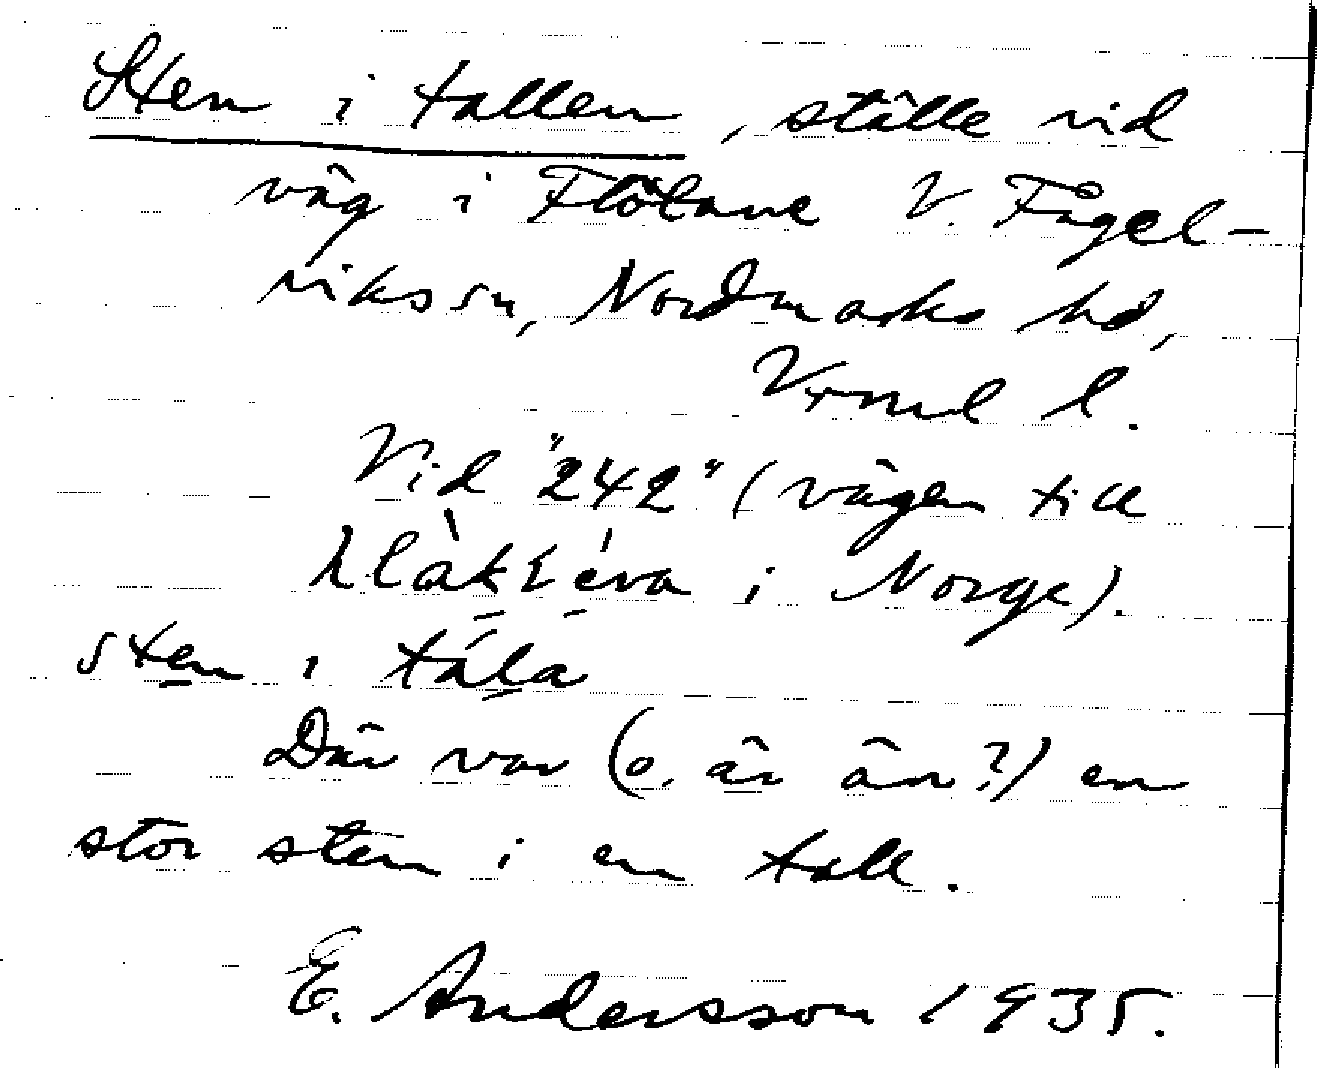 Sten i tallen, ställe vid
väg i Flötane V. Fågel-
vikssn, Nordmarks hd,
Vrml l.
Vid "242" (vägen till
i Norge).
sten i tála
Där var (o. är än?) en
stor sten i en tall.
E. Andersson 1935.